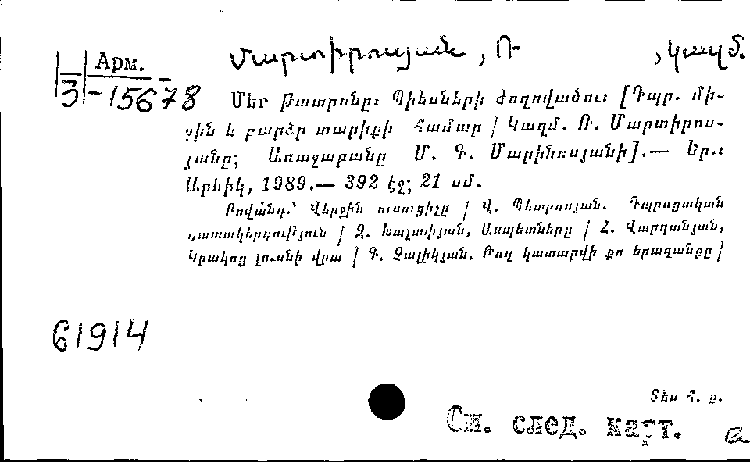 Арм.
3-15678
Մարտիրոսյան, Ռ., կազմ.
Մեր թատրոնը: Պիեսների ժողովածու [Դպր. մի-
ջին և բարձր տարիքի համար / Կազմ. Ռ. Մարտիրոս-
յանը; Առաջաբանը Մ. Գ. Մարինոսյանի].— Եր.:
Արևիկ, 1989.— 392 էջ; 21 սմ.
Բովանդ.՝ Վերջին ուսուցիչը / Վ. Պետրոսյան. Դպրոցական
կատակերգություն / Զ. Խալափյան. Ասպետները / Հ. Վարդանյան,
Կրակոց լուսնի վրա / Գ. Չալիկյան. Թող կատարվի քո երազանքը /
61914
Տես հ. ք.
См. след. карт.
a